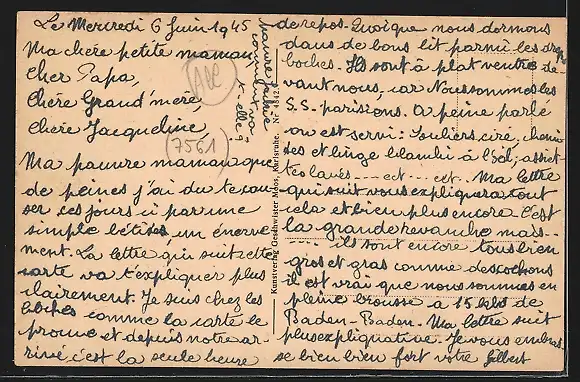 Le Mercredi 6 Juin 1945
Ma chère petite maman,
Cher Papa,
Chère Grand'mère,
Chère Jacqueline,
Ma pauvre maman que
de peines j'ai du te cau
ser ces jours ci par une
simple bêtise, un énerve
ment. La lettre qui suit cette
carte va t'expliquer plus
clairement. Je suis chez les
boches comme la carte le
prouve et depuis notre ar
rivé c'est la seule heure
comment va
t-elle?
ADC
(7561)
Kunstverlag Geschwister Moos, Karlsruhe. Nr 1842
de repos. Quoique nous dormons
dans de bons lit parmi les
boches. Ils sont à plat ventre de-
vant nous, car Nous sommes les
S.S. parisiens. A peine parlé
on est servi: Souliers ciré, chemi
ses et linge blanchi à l'œil, assiet
tes lavés ---- ect --- ect. Ma lettre
qui suit vous expliquera tout
cela et bien plus encore C'est
la grande revanche mais----
------- ils sont encore tous bien
gros et gras comme des cochons
il est vrai que nous sommes en
pleine brousse à 15 kils de
Baden-Baden. Ma lettre suit
plus explicative. Je vous embras
se bien bien fort votre Gilbert